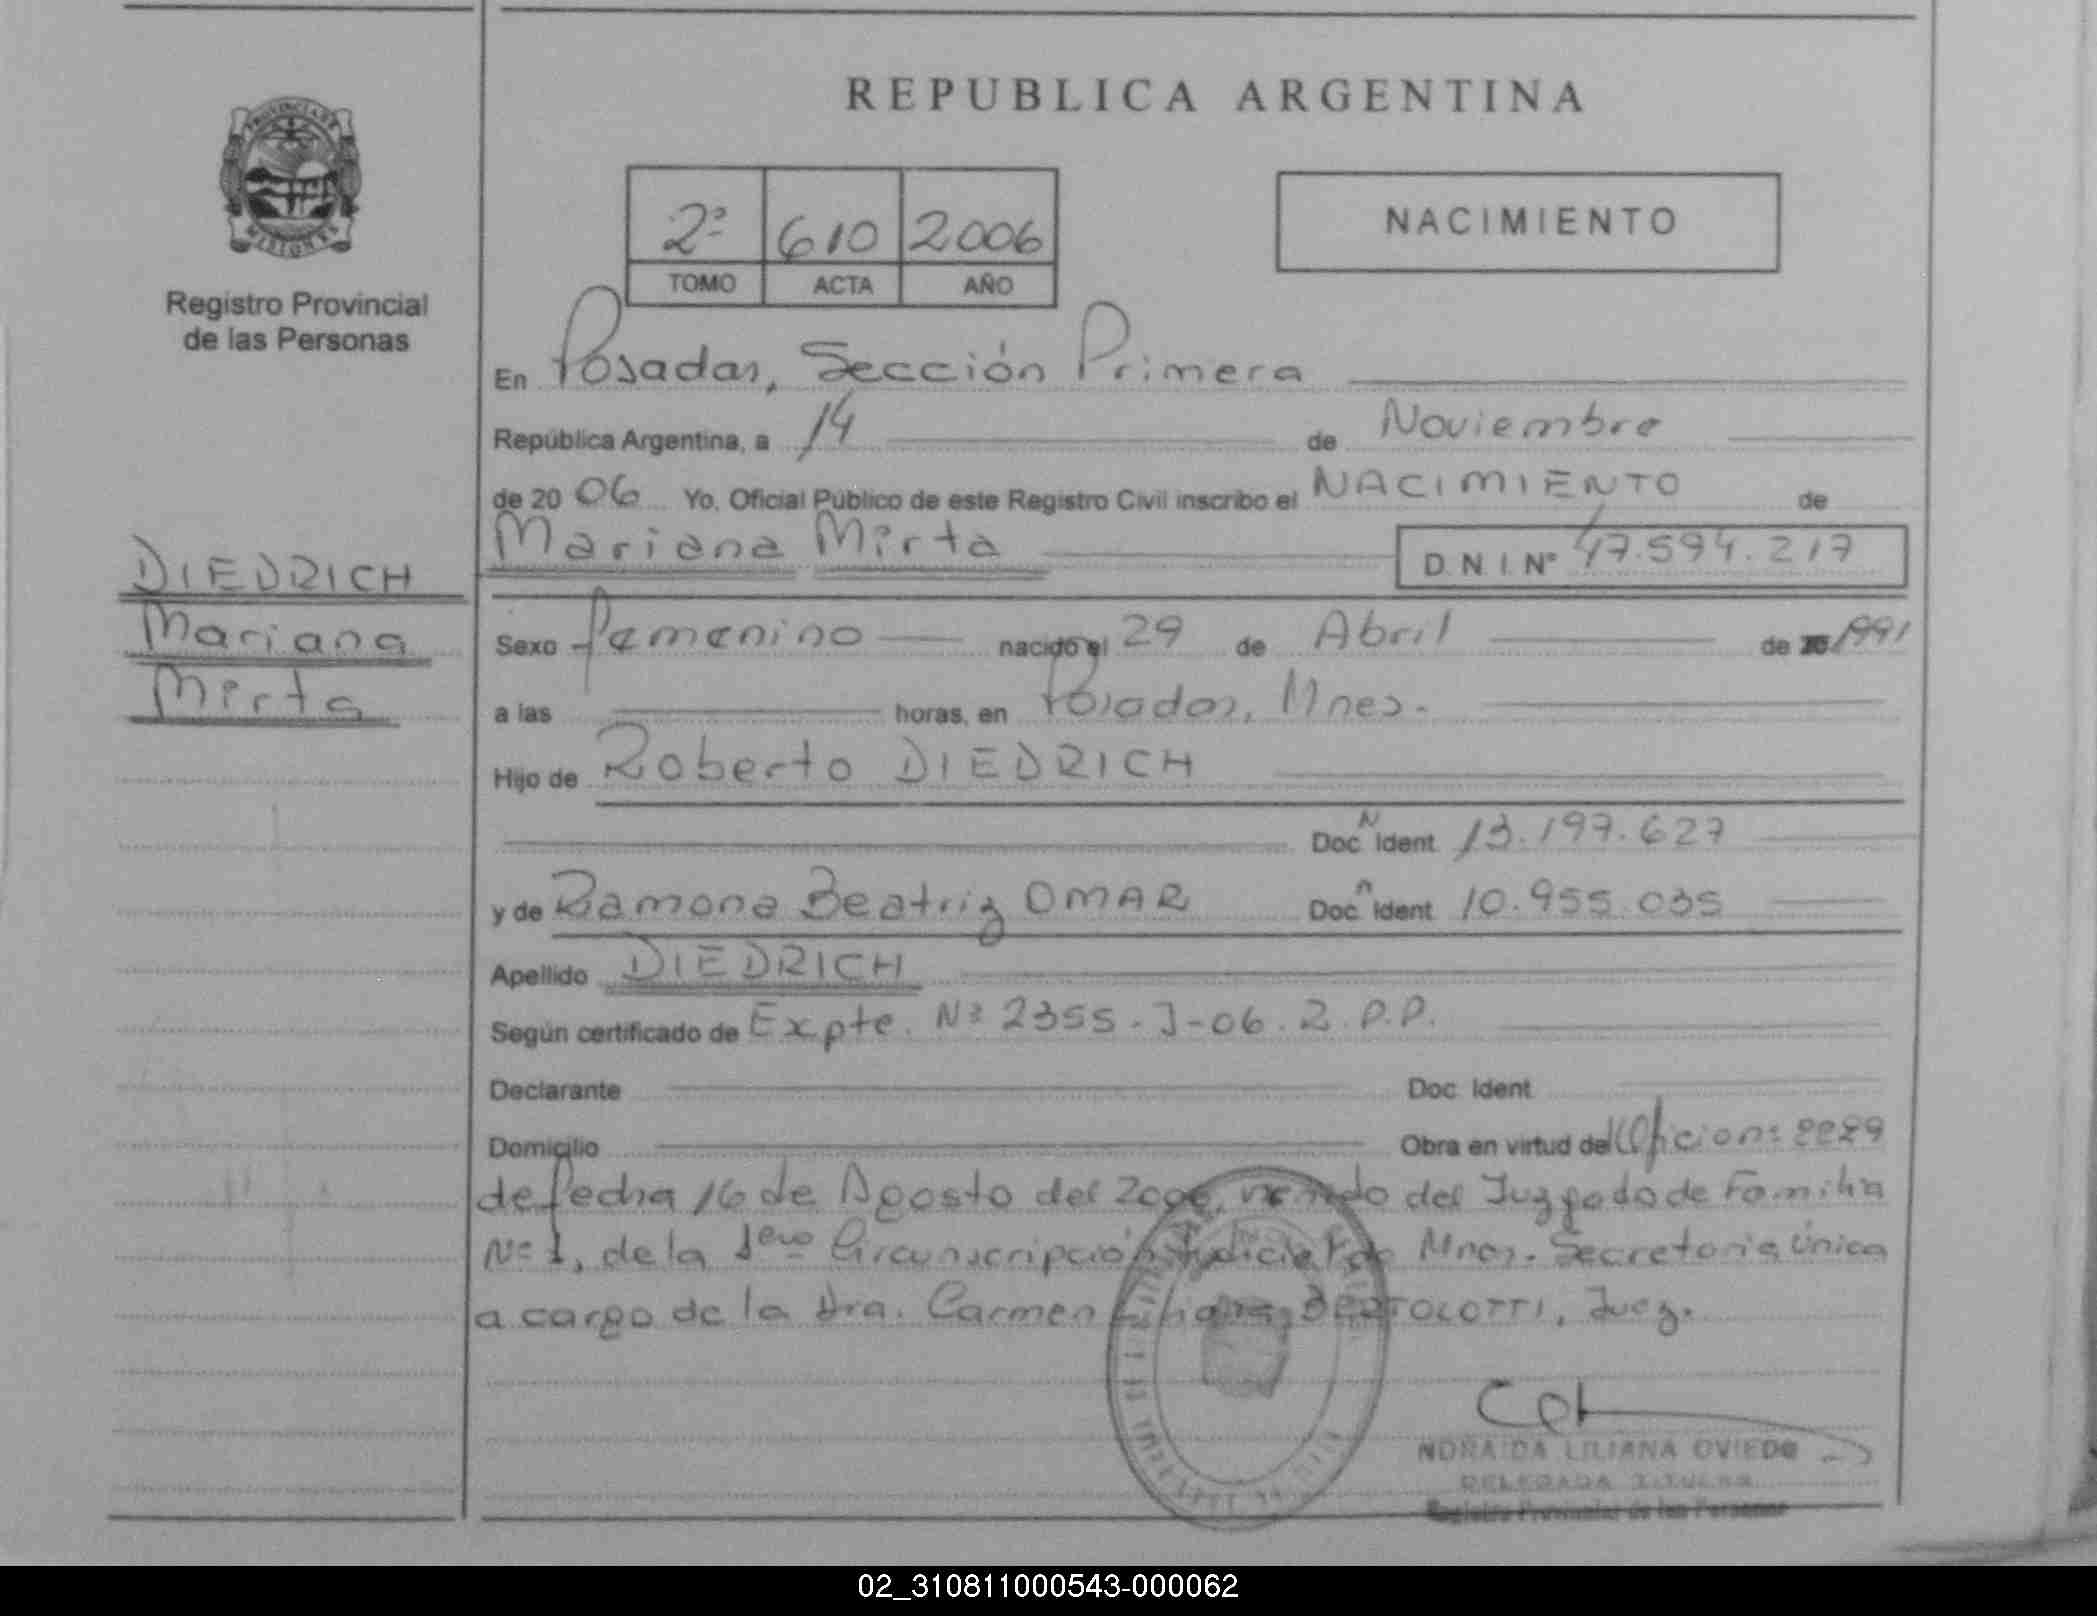 REPUBLICA ARGENTINA
PROVINCIA DE
MISIONES
Registro Provincial
de las Personas
2º 610 2006
TOMO ACTA AÑO
NACIMIENTO
En Posadas, Sección Primera
República Argentina, a 14 de Noviembre
de 20 06 Yo, Oficial Público de este Registro Civil inscribo el NACIMIENTO de
Mariana Mirta D.N.I. Nº 47.594.217
DIEDRICH
Mariana
Mirta
Sexo femenino nacido el 29 de Abril de 1991
a las horas, en Posadas, Mnes.
Hijo de Roberto DIEDRICH
Doc N Ident 13.197.627
y de Ramona Beatriz OMAR Doc n Ident 10.955.035
Apellido DIEDRICH
Según certificado de Expte. Nº 2355-J-06.2.P.P.
Declarante Doc. Ident
Domicilio Obra en virtud del Oficio nº 2229
de fecha 16 de Agosto del 2006, venido del Juzgado de Familia
Nº 1, de la 1era Circunscripción Judicial de Mnes. Secretaria única
a cargo de la Dra. Carmen BERTOLOTTI, Juez.
NORAIDA LILIANA OVIEDO
DELEGADA TITULAR
Registro Provincial de las Personas
02_310811000543-000062